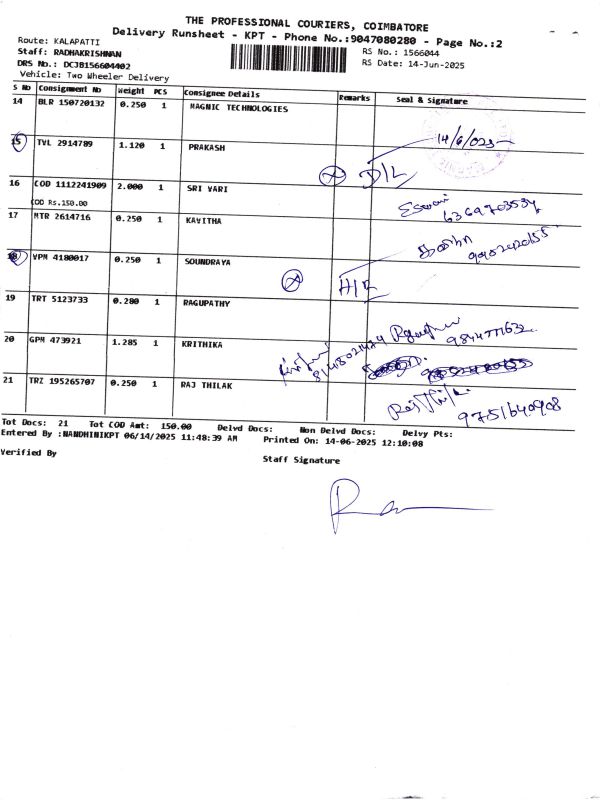 THE PROFESSIONAL COURIERS, COIMBATORE
Delivery Runsheet - KPT - Phone No.:9047080280 - Page No.:2
Route: KALAPATTI
RS No.: 1566044
Staff: RADHAKRISHNAN
RS Date: 14-Jun-2025
DRS No.: DCJB156604402
Vehicle: Two Wheeler Delivery
S No Consignment No Weight PCS Consignee Details Remarks Seal & Signature
14 BLR 150720132 0.250 1 MAGNIC TECHNOLOGIES
14/6/025
15 TVL 2914789 1.120 1 PRAKASH
D/L
16 COD 1112241909 2.000 1 SRI VARI
COD Rs.150.00
6369703534
17 MTR 2614716 0.250 1 KAVITHA
9902420155
18 VPM 4180017 0.250 1 SOUNDRAYA
H/L
19 TRT 5123733 0.280 1 RAGUPATHY
984477163
20 GPM 473921 1.285 1 KRITHIKA
21 TRZ 195265707 0.250 1 RAJ THILAK
Raj Thilak
9751640908
Tot Docs: 21 Tot COD Amt: 150.00 Delvd Docs: Non Delvd Docs: Delvy Pts:
Entered By :NANDHINIKPT 06/14/2025 11:48:39 AM Printed On: 14-06-2025 12:10:08
Verified By
Staff Signature